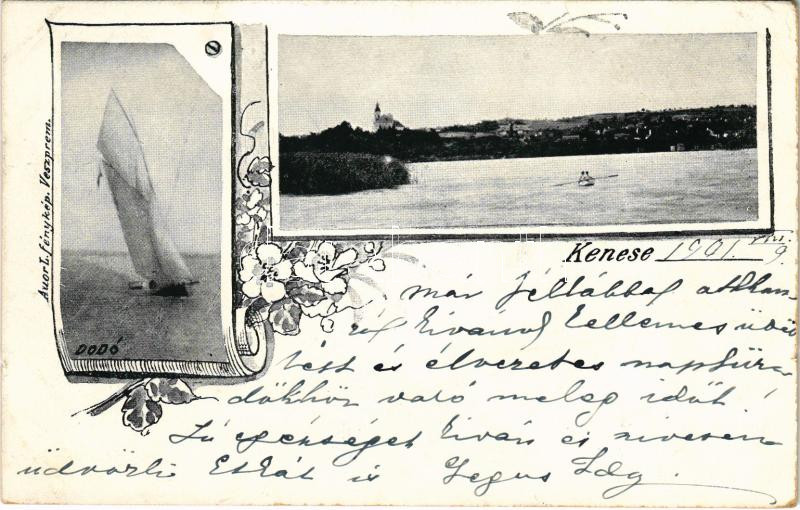 Auor L. fénykép. Veszprem.
DODÓ
Kenese 1901. VIII. 9
már féllábbal
kivánok kellemes üdü
lést és élvezetes napfür
dökhöz való meleg időt!
Jó egészséget kiván és szivesen
üdvözli Etkát is